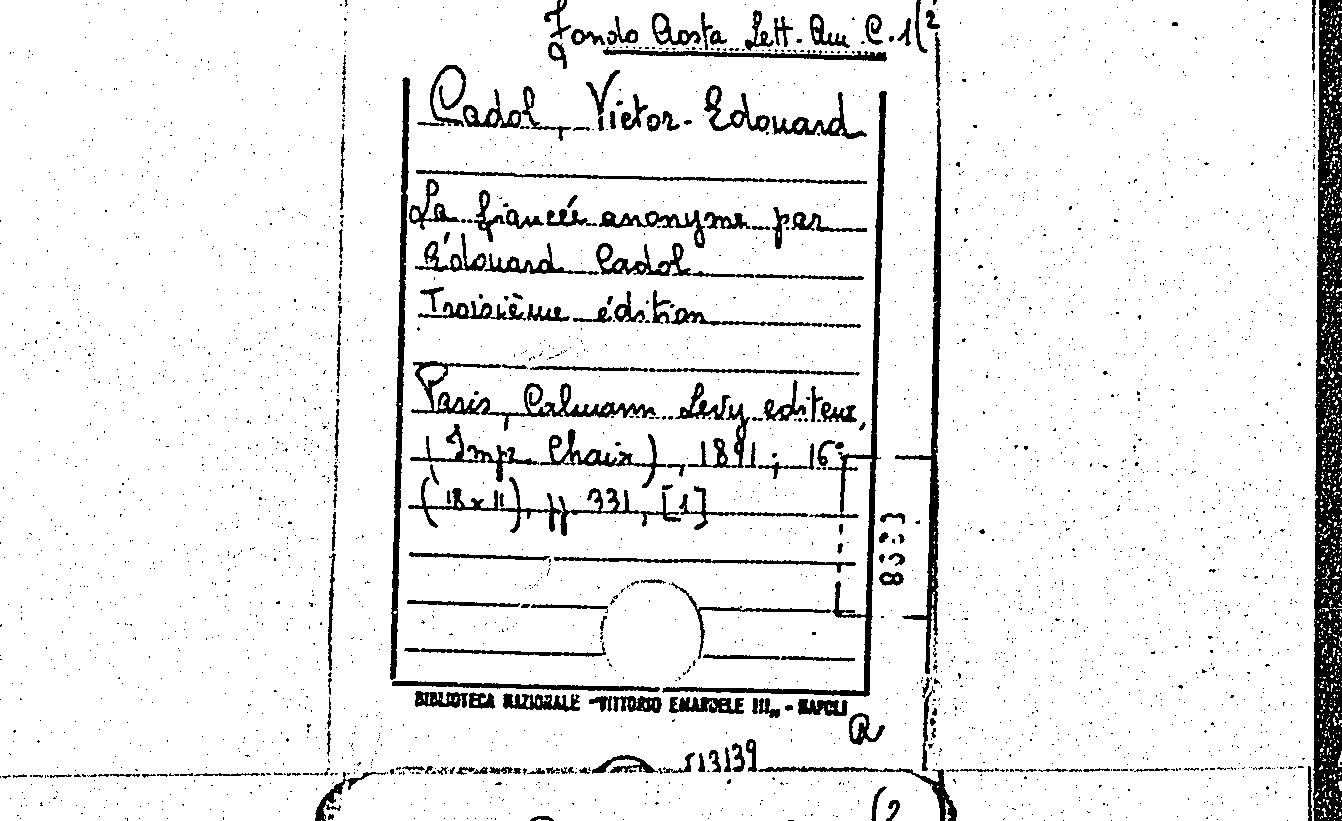 Fondo Aosta Lett. Qui C. 1(2
Cadol, Victor-Edouard
La fiancée anonyme par
Édouard Cadol
Troisième édition
Paris, Calmann Levy editeur,
(Imp. Chaix), 1891; 16°
(18x11), pp. 331, [1]
8333
BIBLIOTECA NAZIONALE "VITTORIO EMANUELE III" - NAPOLI
R
513139
(2